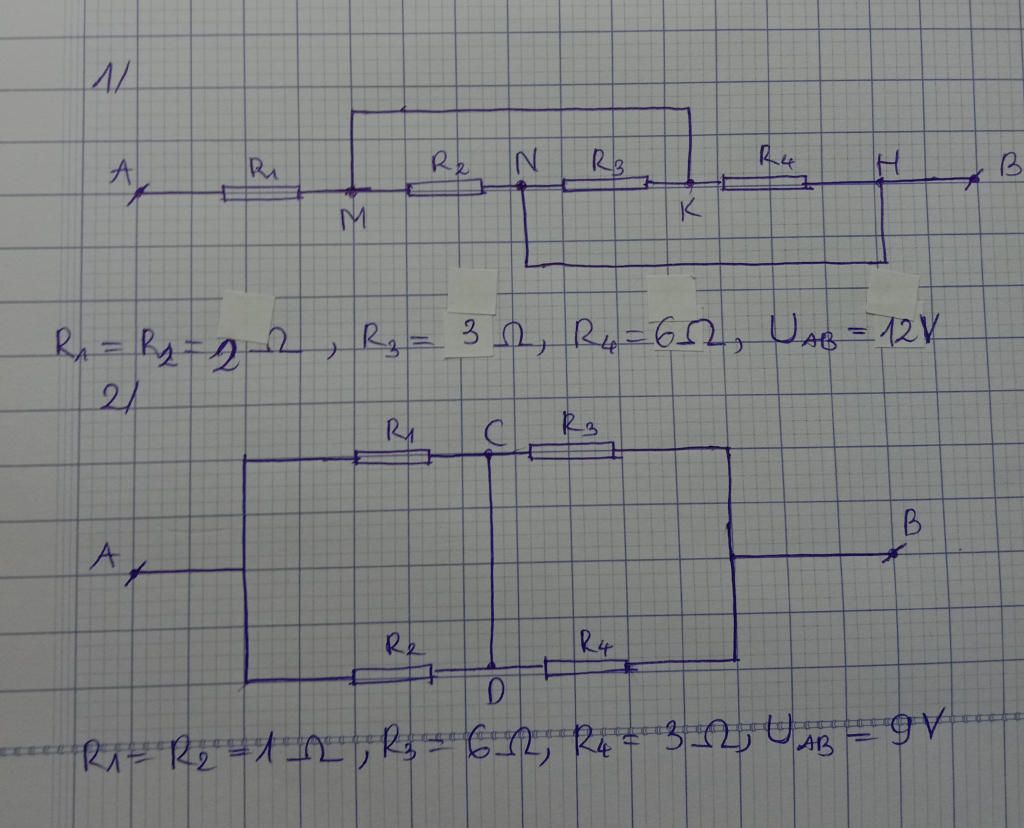 1/
A R1 M R2 N R3 K R4 H B
R1 = R2 = 2 Ω , R3 = 3 Ω, R4 = 6 Ω, UAB = 12V
2/
R1 C R3
A B
R2 D R4
R1 = R2 = 1 Ω , R3 = 6 Ω, R4 = 3 Ω, UAB = 9V